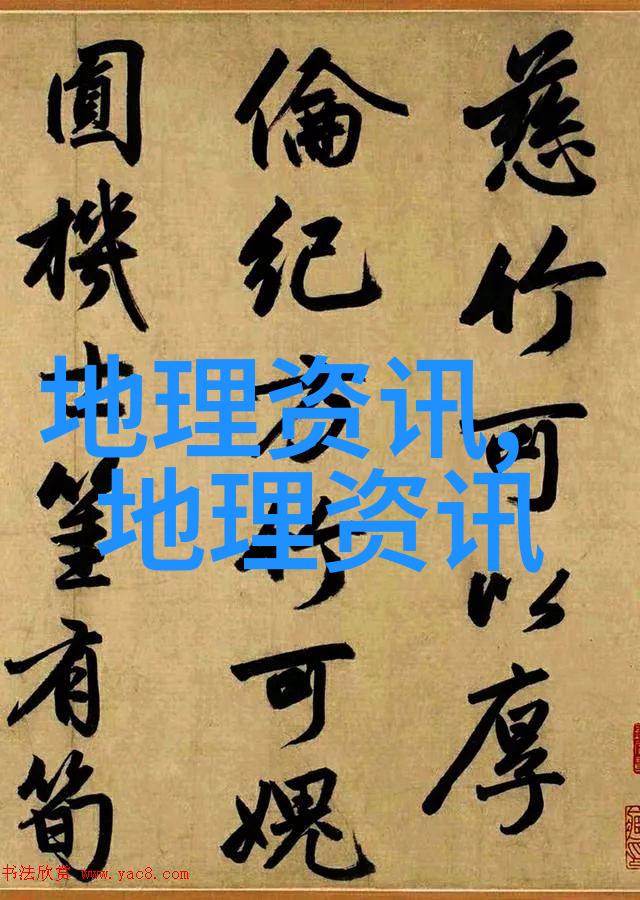 慈竹可以厚
倫紀方竹可愧
圓機士筀有筍
地理资讯,
地理资讯
书法欣赏 www.yac8.com